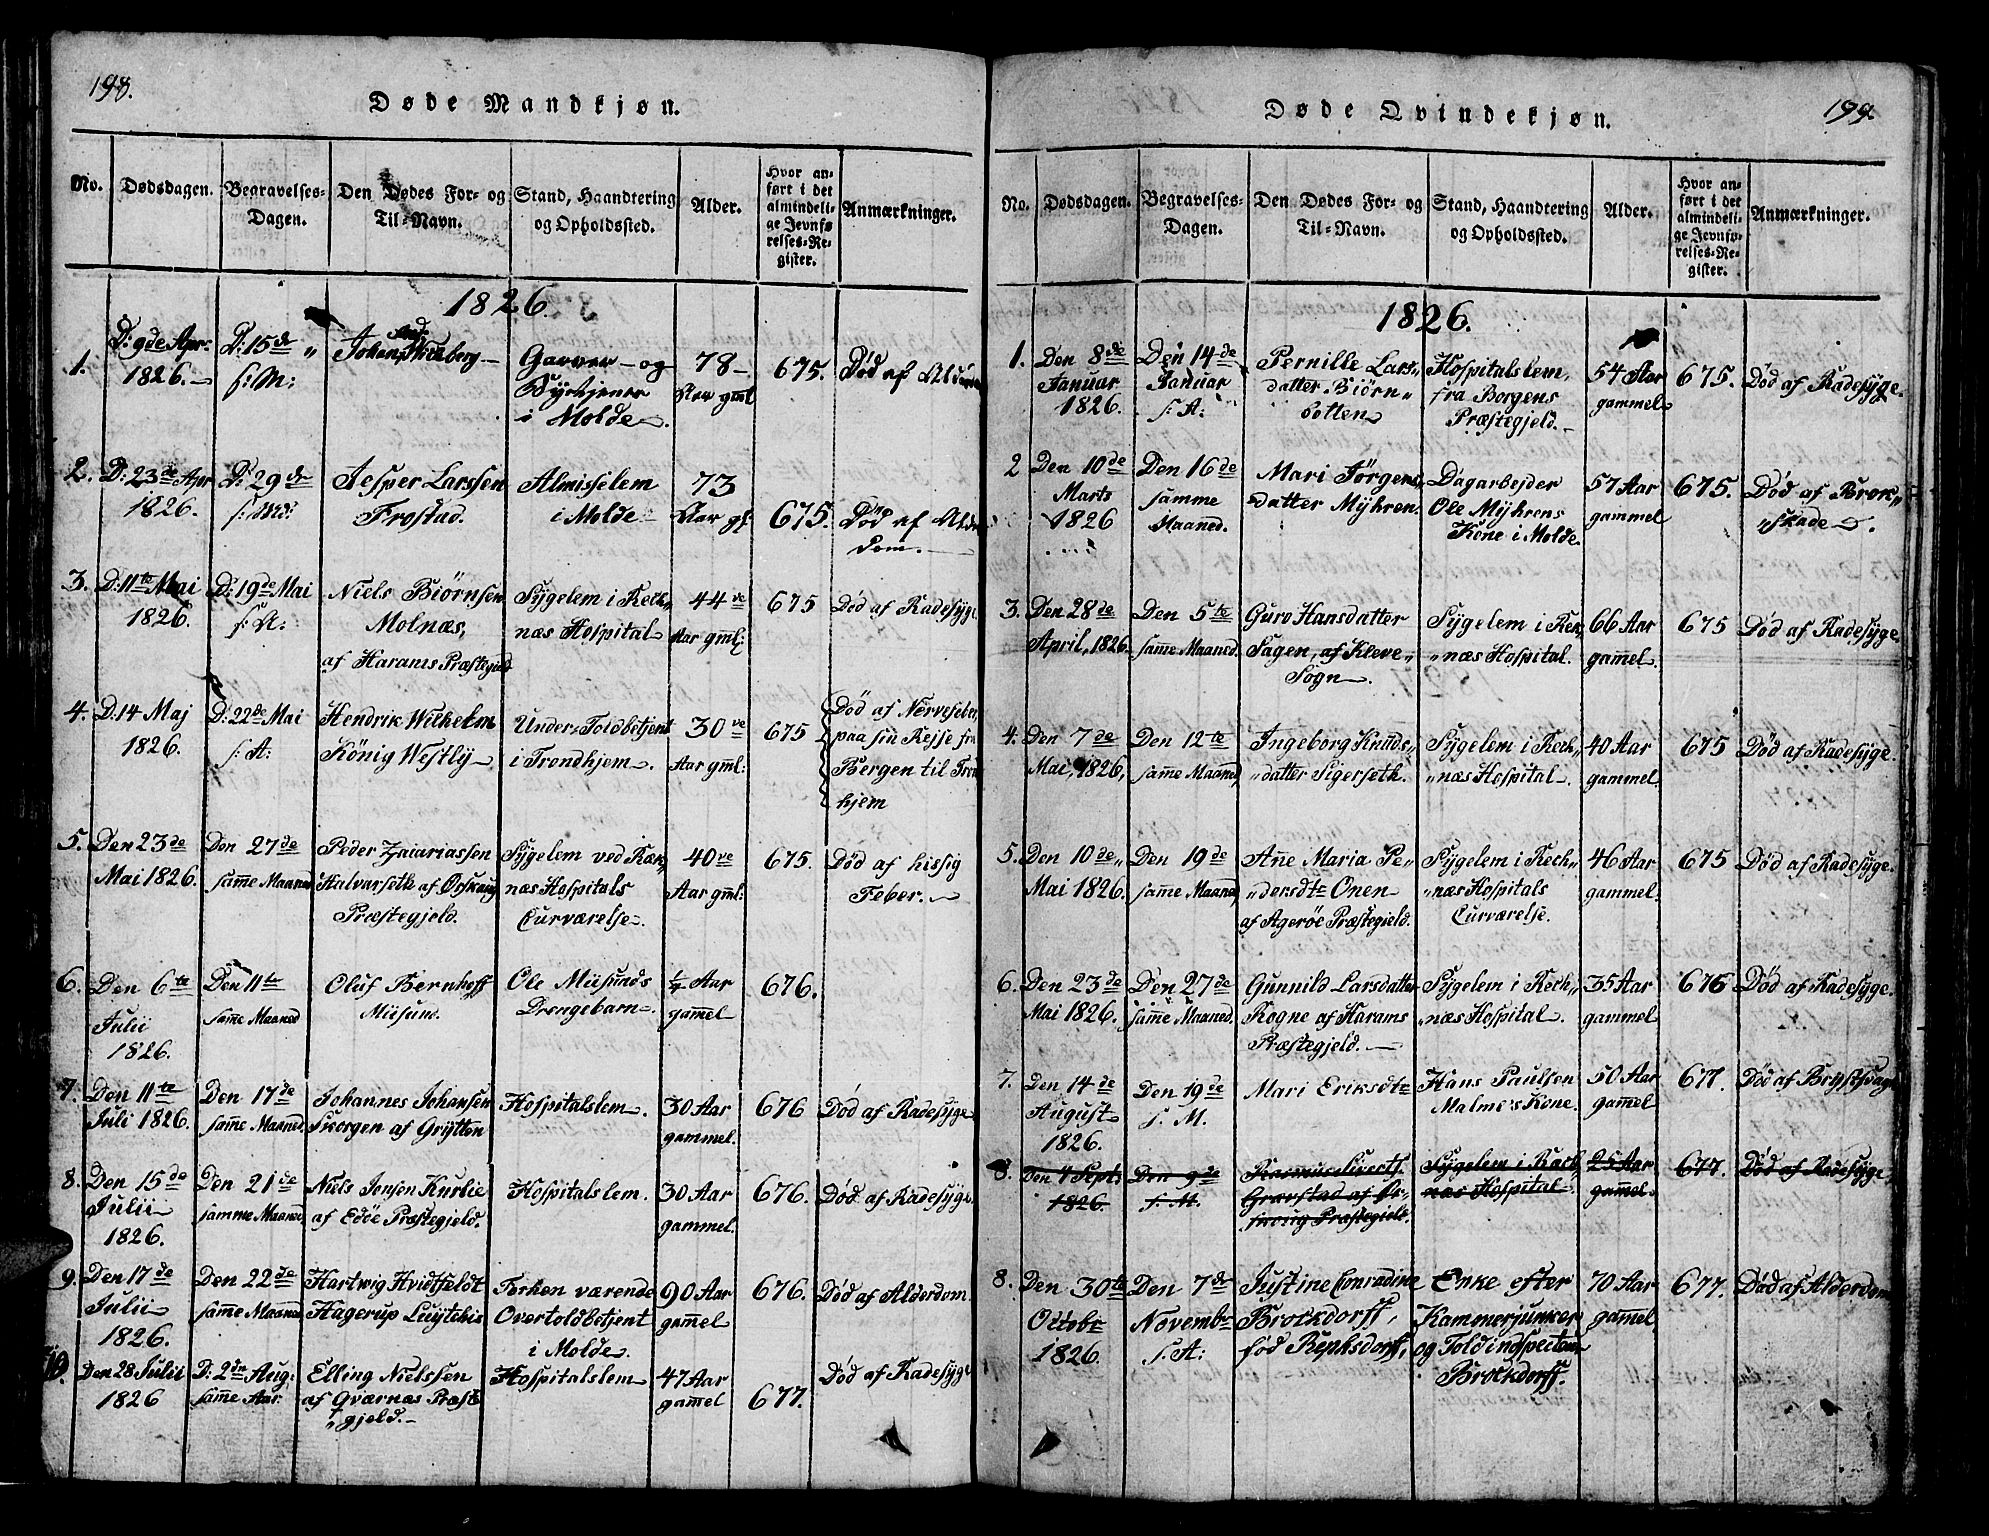 198.
Døde Mandkjøn.
No.
Dødsdagen.
Begravelses-
Dagen.
Den Dødes For- og
Til-Navn.
Stand, Haandtering
og Opholdssted.
Alder.
Hvor an-
ført i det
almindeli-
ge Jevnfø-
relses-Re-
gister.
Anmærkninger.
1826.
1.
D: 9de Apr:
1826.
D: 15de "
s: M:
Johan
Garver- og
Byetjener
i Molde.
78
Aar gml
675.
Død af
2.
D: 23de Apr
1826.
D: 29de
s: Md:
Jesper Larssen
Frostad.
Almisselem
i Molde
73
Aar gl.
675.
Død af Alder
dom.
3.
D: 11te Mai
1826.
D: 19de Mai
s: A:
Niels Biørnsen
Molnæs,
af Harams Præstegjeld
Sygelem i Reck-
næs Hospital
44ve
Aar gml:
675
Død af Radesyge.
4.
D. 14 Maj
1826.
D: 22de Mai
s: A:
Hendrik Wilhelm
König Westly
Under-Toldbetjent
i Trondhjem.
30ve
Aar gml:
675
Død af Nerveseber,
paa sin Rejse fra
Bergen til Tron
hjem
5.
Den 23de
Mai 1826.
Den 27de
sam̅e Maaned
Peder Zacariassen
Halvarseth af Ørskoug
Præstegjeld.
Sygelem ved Ræk-
næs Hospitals
Curværelse.
40ve
Aar gml:
675.
Død af hissig
Feber.
6.
Den 6te
Julii
1826.
Den 11te
sam̅e Maaned
Oluf Bernhoff
Misund.
Ole Misunds
Drengebarn.
1/4 Aar
gam̅el
676.
7.
Den 11te
Juli 1826.
Den 17de
sam̅e Maaned.
Johannes Johansen
Skorgen af Grytten
Hospitalslem.
30 Aar
gammel.
676
Død af Radesyge
8.
Den 15de
Julii
1826.
Den 21de
samme Maaned
Niels Jensen Kurlie
af Edöe Præstegjeld.
Hospitalslem.
30 Aar
gammel.
676.
Død af Radesyge.
9.
Den 17de
Julii
1826.
Den 22de
sam̅e Maaned
Hartwig Hvidtfeldt
Hagerup Luytchis
Forhen værende
Overtoldbetjent
i Molde.
90 Aar
gam̅el
676.
Død af Alderdom.
10.
Den 28 Julii
1826
D: 2den Aug:
samme Aar.
Elling Nielssen
af Qværnæs Præste
gjeld.
Hospitalslem
47 Aar
gam̅el
677.
Død af Radesyge
199.
Døde Qvindekjøn.
No.
Dødsdagen.
Begravelses-
Dagen.
Den Dødes For- og
Til-Navn.
Stand, Haandtering
og Opholdssted.
Alder.
Hvor an-
ført i det
almindeli-
ge Jevnfø-
relses-Re-
gister.
Anmærkninger.
1826.
1.
Den 8de
Januar
1826.
Den 14de
Januar
s: A:
Pernille Lars-
datter Biørn-
botten
Hospitalslem,
fra Borgens
Præstegjeld.
54 Aar
gammel.
675.
Død af Radesyge.
2
Den 10de
Marts
1826
Den 16de
samme
Maaned.
Mari Jörgens-
datter Myhren.
Dagarbejder
Ole Myhrens
Kone i Molde.
57 Aar
gammel
675.
Død af Brok-
skade.
3.
Den 28de
April, 1826.
Den 5te
sam̅e Maaned.
Guro Hansdatter
Sagen, af Kleve-
Sogn.
Sygelem i Rek-
næs Hospital.
66 Aar
gam̅el.
675
Død af Radesyge.
4.
Den 7de
Mai, 1826,
Den 12te
sam̅e Maaned,
Ingeborg Knuds-
datter Sigerseth.
Sygelem i Reck-
næs Hospital
40 Aar
gammel
675
Død af Radesyge.
5.
Den 10de
Mai 1826.
Den 19de
sam̅e Maaned,
An̅e Maria Pe-
dersdtr Onen
af Agerøe Præstegjeld.
Sygelem i Rech-
næs Hospitals
Curværelse.
46 Aar
gammel.
675
Død af Radesyge.
6.
Den 23de
Mai 1826.
Den 27de
sam̅e Maaned.
Gunnild Larsdatter
Rogne af Harams
Præstegjeld.
Sygelem i Rech-
næs Hospital.
35 Aar
gammel
676
Død af Radesyge.
7.
Den 14de
August
1826.
Den 19de
s. M.
Mari Eriksdtr
Hans Paulsen
Malmes Kone.
50 Aar
gammel
677.
Død af Brystsvag
8.
Den 4 Septr
1826.
Den 9de
s. M.
Rasmus Sivertss.
Gravstad af Ør-
skoug Præstegield.
Sygelem i Rack
næs Hospital
25 Aar
gammel.
677.
Død af Radesyge
8.
Den 30te
Octobr
1826.
Den 7de
Novembr
s. A:
Justine Conradine
Brockdorff,
fød Repksdorff,
Enke efter
Kammerjunker
og Toldinspecteur
Brockdorff.
70 Aar
gammel
677.
Død af Alderdom